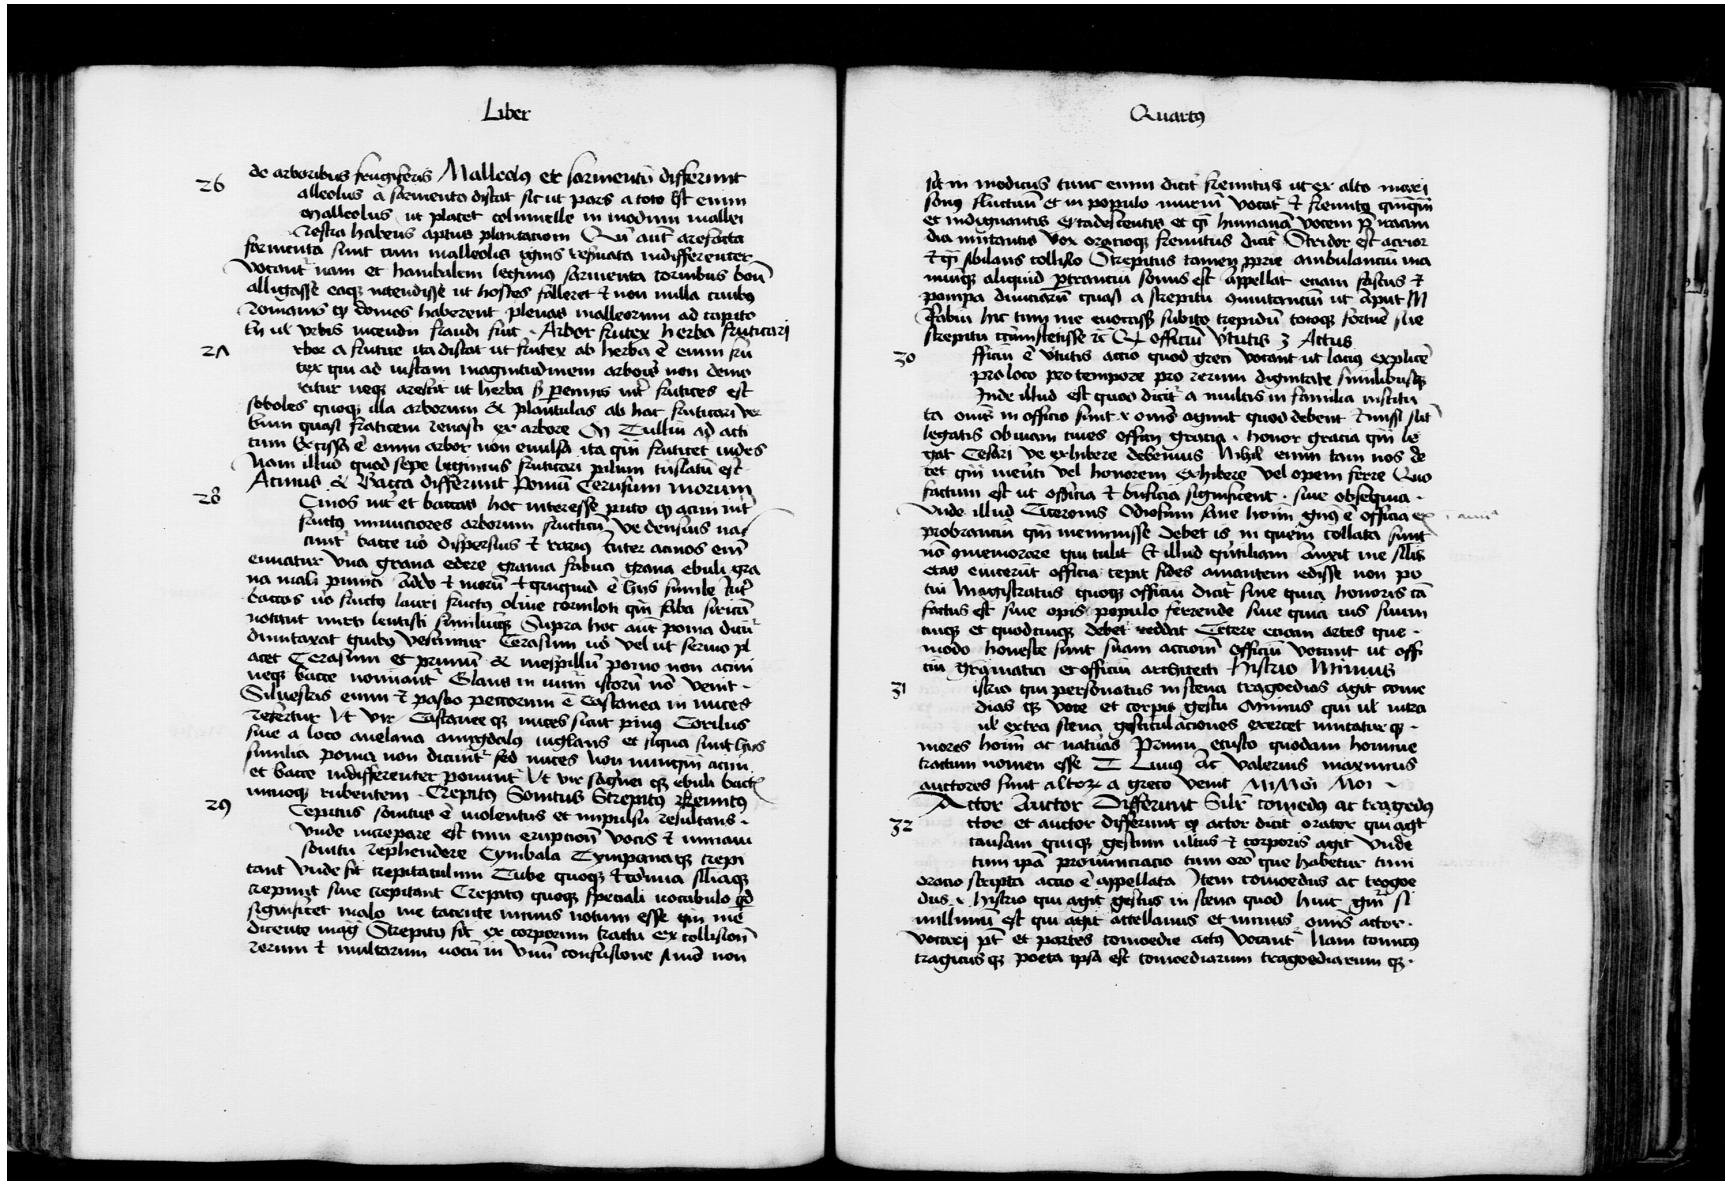 Liber
26 de arboribus frugiferis Malleolꝰ et sarmentū differunt
alleolus a sarmento distat sic ut pars a toto Est enim
malleolus ut placet columelle in modum mallei
restra habens aptus plantationi Qn̄ aūt arefacta
sarmenta sunt cum malleolis ignis reseruata indifferenter
vocant᷑ nam et hanibalem legimus sarmenta cornibus boū
alligasse eaqꝫ incendisse ut hostes falleret ⁊ non nulla ciuibꝰ
romanis domos haberent plenas malleorum ad capito
lij ul vrbis incendij fraudi fuit · Arbor frutex herba fruticari
27 rbor a frutice ita distat ut frutex ab herba ē enim fru
tex qui ad iustam magnitudinem arboris non deue
nitur neqꝫ arescit ut herba ꝑennis int᷑ frutices est
soboles quoqꝫ illa arborum & plantulas ab hac fruticari ver
bum quasi fraticem renasci ex arbore M Tulliū ad acti
cum Excissa ē enim arbor non euulsa ita qm̄ fruticet uides
Nam illud quod sepe legimus fruticari pilum trāslatū est
Acinus & Bacca differunt Pomū Cerasum morum
28 Cinos int᷑ et baccas hoc interesse puto acini int᷑
fructꝰ minutiores arborum fruticū ve densius nas
cunt᷑ bacce uō dispersius ⁊ rarius Inter acinos em̄
enuciatur vua grana edere grania sabuci grana ebuli gra
na mali punici Addo ⁊ morū ⁊ quiquid ē hijs simile Int᷑
baccas uō fructꝰ lauri fructꝰ oliue
notant mirti lentisci similiūqꝫ Supra hoc aūt poma dicū
dumtaxat quibꝰ vescimur Cerasum uō vel ut seruio pl
acet Cerasum et prunū & mespillū pomo non acini
neqꝫ bacce nominant᷑ Glans in num̄ istorū nō venit ·
Siluestris enim ⁊ pastio peccorum ē Castanea in nuces
refertur Vt vir Castanee qꝫ nuces sicut pinꝰ Corilus
siue a loco auelana amigdalꝰ iuglans et siqua sunt hijs
similia poma non dicunt᷑ sed nuces Non nunqm̄ acini
et bacce indifferenter ponunt᷑ Vt vir sagūnei qꝫ ebuli baccꝭ
minioqꝫ rubentem · Crepitꝰ Sonitus Strepitꝰ Fremitꝰ
29 Crepitus sonitus ē violentus et impulsu resultans ·
Vnde increpare est cum eruptionē vocis ⁊ nimiam
sonitu rephendere Cymbala Tympanaqꝫ crepi
tant Vnde fit crepitaculum Tube quoqꝫ ⁊ cornua siliaqꝫ
crepunt siue crepitant Crepitꝰ quoqꝫ speciali uocabulo qd
significet malo me tacente minus notum esse qm̄ me
dicente mag᷑ Strepitꝰ fit ex corporum tractu ex collisionē
rerum ⁊ multarum uocū in vnū confusione Amē non
Quartꝰ
sit in modicus tunc enim dicit᷑ fremitus ut ex alto maris
sonꝰ fluctuū et in populo murm̄ vocat᷑ ⁊ fremitꝰ qnqm̄
et indignantis extadescentis et qsi humanā vocem ꝑ iracun
dia mutantis vox oratioqꝫ fremitus dicit᷑ Stridor est acrior
⁊ qsi sibilans collisio Strepitus tamen ꝓprie ambulanciū ina
niuqꝫ aliquid ꝑtrantiū sonus est Appellat etiam fastus ⁊
pompa diuiciarū quasi a strepitu comitanciū ut aput M
Fabiū hic tum me euectisse subito trepidū totoqꝫ fortune sue
strepitu circumstetisse ⁊c Q officiū v᷑tutis Actus
30 fficiū ē v᷑tutis actio quod greci vocant ut lacius explicē
pro loco pro tempore pro rerum dignitate similibusqꝫ
Inde illud est quod dicit᷑ a multis in familia institu
ta omīs in officio sunt omīs agunt quod debent ⁊ nisi sūt
legatis obuiam ciues officij gracia · honor gracia qm̄ le
gat Cesari ve exhibere debemus Nihil enim tam nos de
cet qm̄ meriti vel honorem exhibere vel opem ferre Quo
factum est ut officia ⁊ bn̄ficia significent · siue obsequia ·
Vnde illud Ciceronis Odiosum sane hoim̄ gnꝰ ē officia ex
probranciū qm̄ meminisse debet is in quem collata sunt
nō commemorare qui tulit Et illud quintiliani Auxit me siliᷤ
etas euicerūt officia cepit fides amantem edisse non po
tui Magistratus quoqꝫ officiū dicit᷑ siue quia honoris cā
factus est siue opis populo ferrende siue quia ius suum
cuiqꝫ et quodcuiqꝫ debet reddat Cetere eciam artes que ·
modo honeste sunt suam actionē officiū vocant ut offi
ciū grāmatici et officiū architecti Histrio Mimus
31 istrio qui personatus in scena tragoedias agit come
dias qꝫ voce et corpis gestu Mimus qui ul intra
ul extra scena gesticulaciones exercet imitatur qꝫ ·
mores hoim̄ ac naturas Primū etusto quodam homine
tractum nomen esse T Liuiꝰ Ac Valerius maximus
auctores sunt alteꝝ a greco venit MIMOI MOI ·
Actor Auctor Differunt Silr̄ comedꝰ ac tragedꝰ
32 ttor et auctor differunt actor dicit᷑ orator qui agit
causam quiqꝫ gestum ultus ⁊ corporis agit Vnde
cum ipā pronunciacio tum orō que habetur cum
oracio scripta accio ē appellata Item comoedus ac tragoe
dus · histrio qui agit gestus in scena quod hunt qm̄ si
millimū est qui agit attellanus et mimus omīs actor ·
vocari pt̄ et partes comoedie actꝰ vocant᷑ Nam comicꝰ
tragicus qꝫ poeta ipsa est comoediarum tragoediarum qꝫ ·